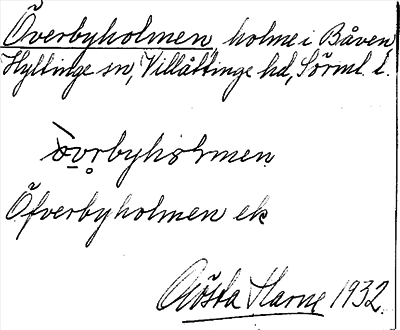 Överbyholmen, holme i Båven
Hyltinge sn, Villåttinge hd, Sörml. l.
övrbyhơlmen
Öfverbyholmen ek
Gösta Harne 1932.